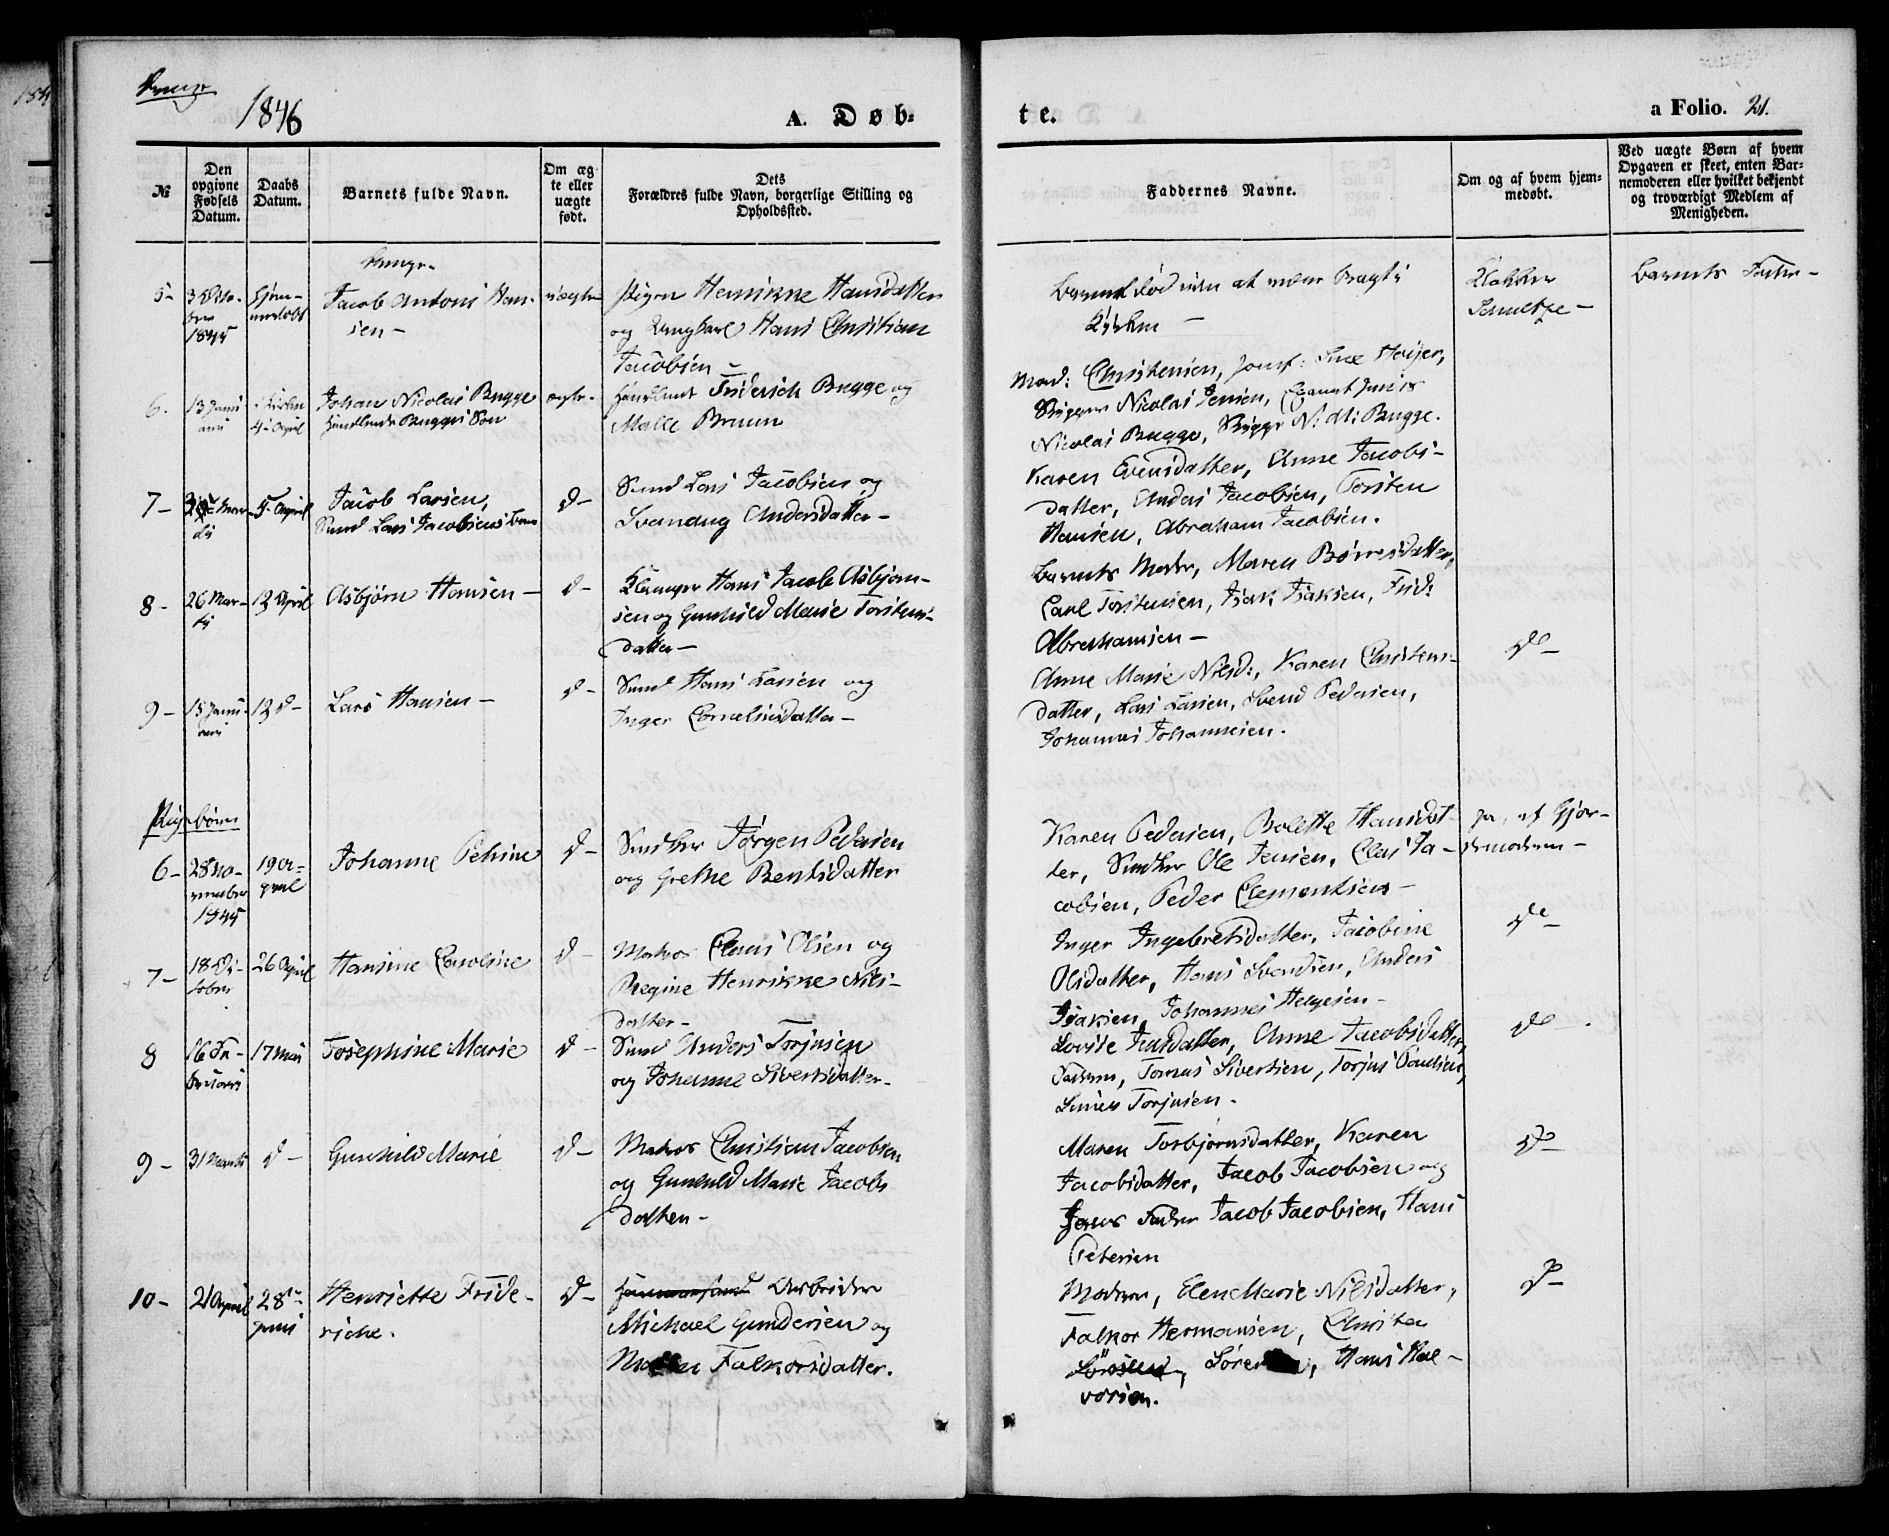 1846
A. Døb-
te.
a Folio. 21.
№
Den
opgivne
Fødsels
Datum.
Daabs
Datum.
Barnets fulde Navn.
Om æg-
te eller
uægte
født.
Dets
Forældres fulde Navn, borgerlige Stilling og
Opholdssted.
Faddernes Navne.
Om og af hvem hjem-
medøbt.
Ved uægte Børn af hvem
Opgaven er skeet, enten Bar-
nemoderen eller hvilket bekjendt
og troværdigt Medlem af
Menigheden.
5-
3 Octo-
ber
1845
hjem-
medøbt
Jacob Antoni Han-
sen-
uægte
Pigen Henrikke Hansdatter
og Ungkarl Hans Christian
Jacobsen-
Barnet død uden at være Bragt i
Kirken-
Klokker
Barnets Fader-
6.
13 Janu
ari
i Kirken
4de April
Johan Nicolai Bugge
Handlende Bugges Søn
ægte-
Handlende Friderich Bugge og
Malle Bruun
Mad: Christensen, Jomf: Høyer,
Skipper Nicolai Jensen,
Nicolai Bugge, N: M: Bugge.
7-
Mar-
tij
5 April
Jacob Larsen,
Sund Lars Jacobsens Barn
d-
Sund Lars Jacobsen og
Svenaug Andersdatter-
Karen Evensdatter, Anne Jacobs-
datter, Anders Jacobsen, Torsten
Hansen, Abraham Jacobsen.
8-
26 Mar-
tij
12 April
Asbjørn Hansen-
d-
Hans Jacob Asbjørn-
sen og Gunhild Marie Torstens-
datter-
Barnets Moder, Maren Børresdatter,
Carl Torstensen, Isak Isaksen, Frid:
Abrahamsen-
9-
15 Janu-
ari
12 d-
Lars Hansen-
d-
Sund Hans Larsen og
Inger Corneliusdatter-
Anne Marie Nilsd:, Karen Christens-
datter, Lars Larsen, Svend Pedersen,
Johannes Johannesen.
do-
Pigebørn
6-
28 No-
vember
1845
19 A-
pril
Johanne Petrine
d-
Snedker Jørgen Pedersen
og Grethe Bentsdatter
Karen Pedersen, Bolette Hansdat-
ter, Snedker Ole Jensen, Claus Ja-
cobsen, Peder Clementsen-
ja, af Gjor-
demoderen-
7-
26 April
Hansine Caroline
d-
Matros Claus Olsen og
Regine Henrikke Nils-
datter-
Inger Ingebretsdatter, Jacobine
Olsdatter, Hans Svendsen, Anders
Isaksen, Johannes Helgesen-
do-
8
16 Fe-
bruari
17 Mai
Josephine Marie
d-
Sund Anders Torjusen
og Johanne Sivertsdatter-
Lovise Jensdatter, Anne Jacobsdatter,
Faderen, Tomas Sivertsen, Torjus Paulsen,
Torjusen.
do-
9-
31 Marts
d-
Gunhild Marie
d-
Matros Christian Jacobsen
og Gunhild Marie Jacobs
datter-
Maren Torbjørnsdatter, Karen
Jacobsdatter, Jacob Jacobsen og
Fader Jacob Jacobsen, Hans
Petersen
do-
10-
21 April
28de
Juni
Henriette Fride-
riche.
d-
Arbeider
Michael Gundersen og
Falkorsdatter.
Moderen, Elen Marie Nilsdatter,
Falkor Hermansen, Christen
Hans Hal-
vorsen.
do-